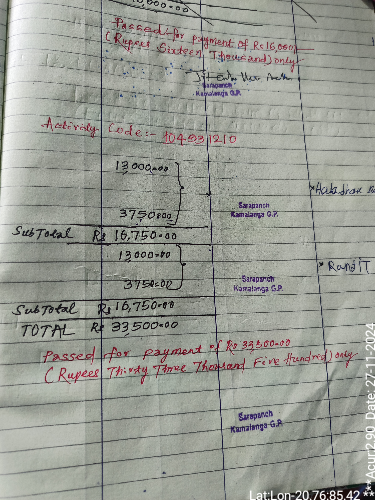 Passed for payment of Rs 16,000
(Rupees Sixteen Thousand) only
Sarapanch
Kamalanga G.P.
Activity Code:- 104031210
13000=00
3750=00
Sarapanch
Kamalanga G.P.
Sub Total Rs 16,750=00
13000=00
3750=00
Sarapanch
Kamalanga G.P.
RanjIT
Sub Total Rs 16,750=00
TOTAL Rs 33,500=00
Passed for payment of Rs 33500=00
(Rupees Thirty Three Thousand Five Hundred) only
Sarapanch
Kamalanga G.P.
Lat:Lon-20.76:85.42
Acur:2.90 Date: 27-11-2024 ***